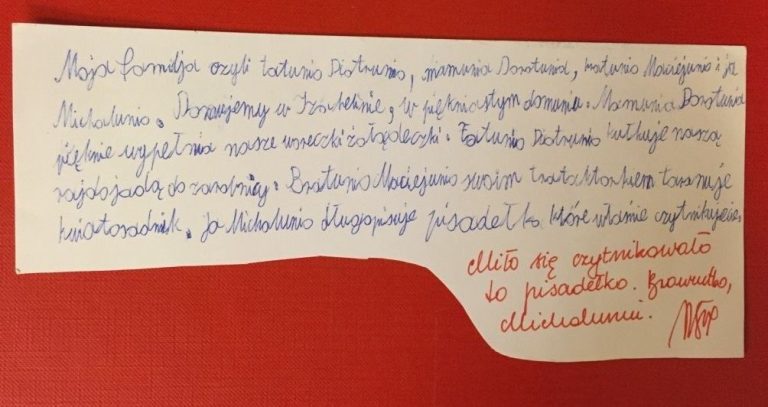 Moja familja czyli tatunio Piotrunio, mamunia Dorotunia, bratunio Maciejunio i ja
Michalunio. Domujemy w Izabelinie, w piękniastym domuniu. Mamunia Dorotunia
pięknie wypełnia nasze woreczki żołądeczki. Tatunio Piotrunio kutkuje naszą
rajdojadą do zarobnicy. Bratunio Maciejunio swoim trataktorkiem taranuje
kwiatosadnik. ja Michalunio długopisuje pisadełko które właśnie czytnikujecie.
Miło się czytnikowało
to pisadełko. Brawurko,
Michaluniu.